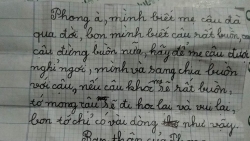 Phong à, mình biết mẹ cậu đã
qua đời, bọn mình biết cậu rất buồn
cậu đừng buồn nữa, hãy để mẹ cậu được
nghỉ ngơi, mình và sang chia buồn
với cậu, nếu cậu khóc sẽ rất buồn,
tớ mong cậu sẽ đi học lại và vui lại,
bọn tớ chỉ có vài dòng như vậy.
Bạn thân của Phong